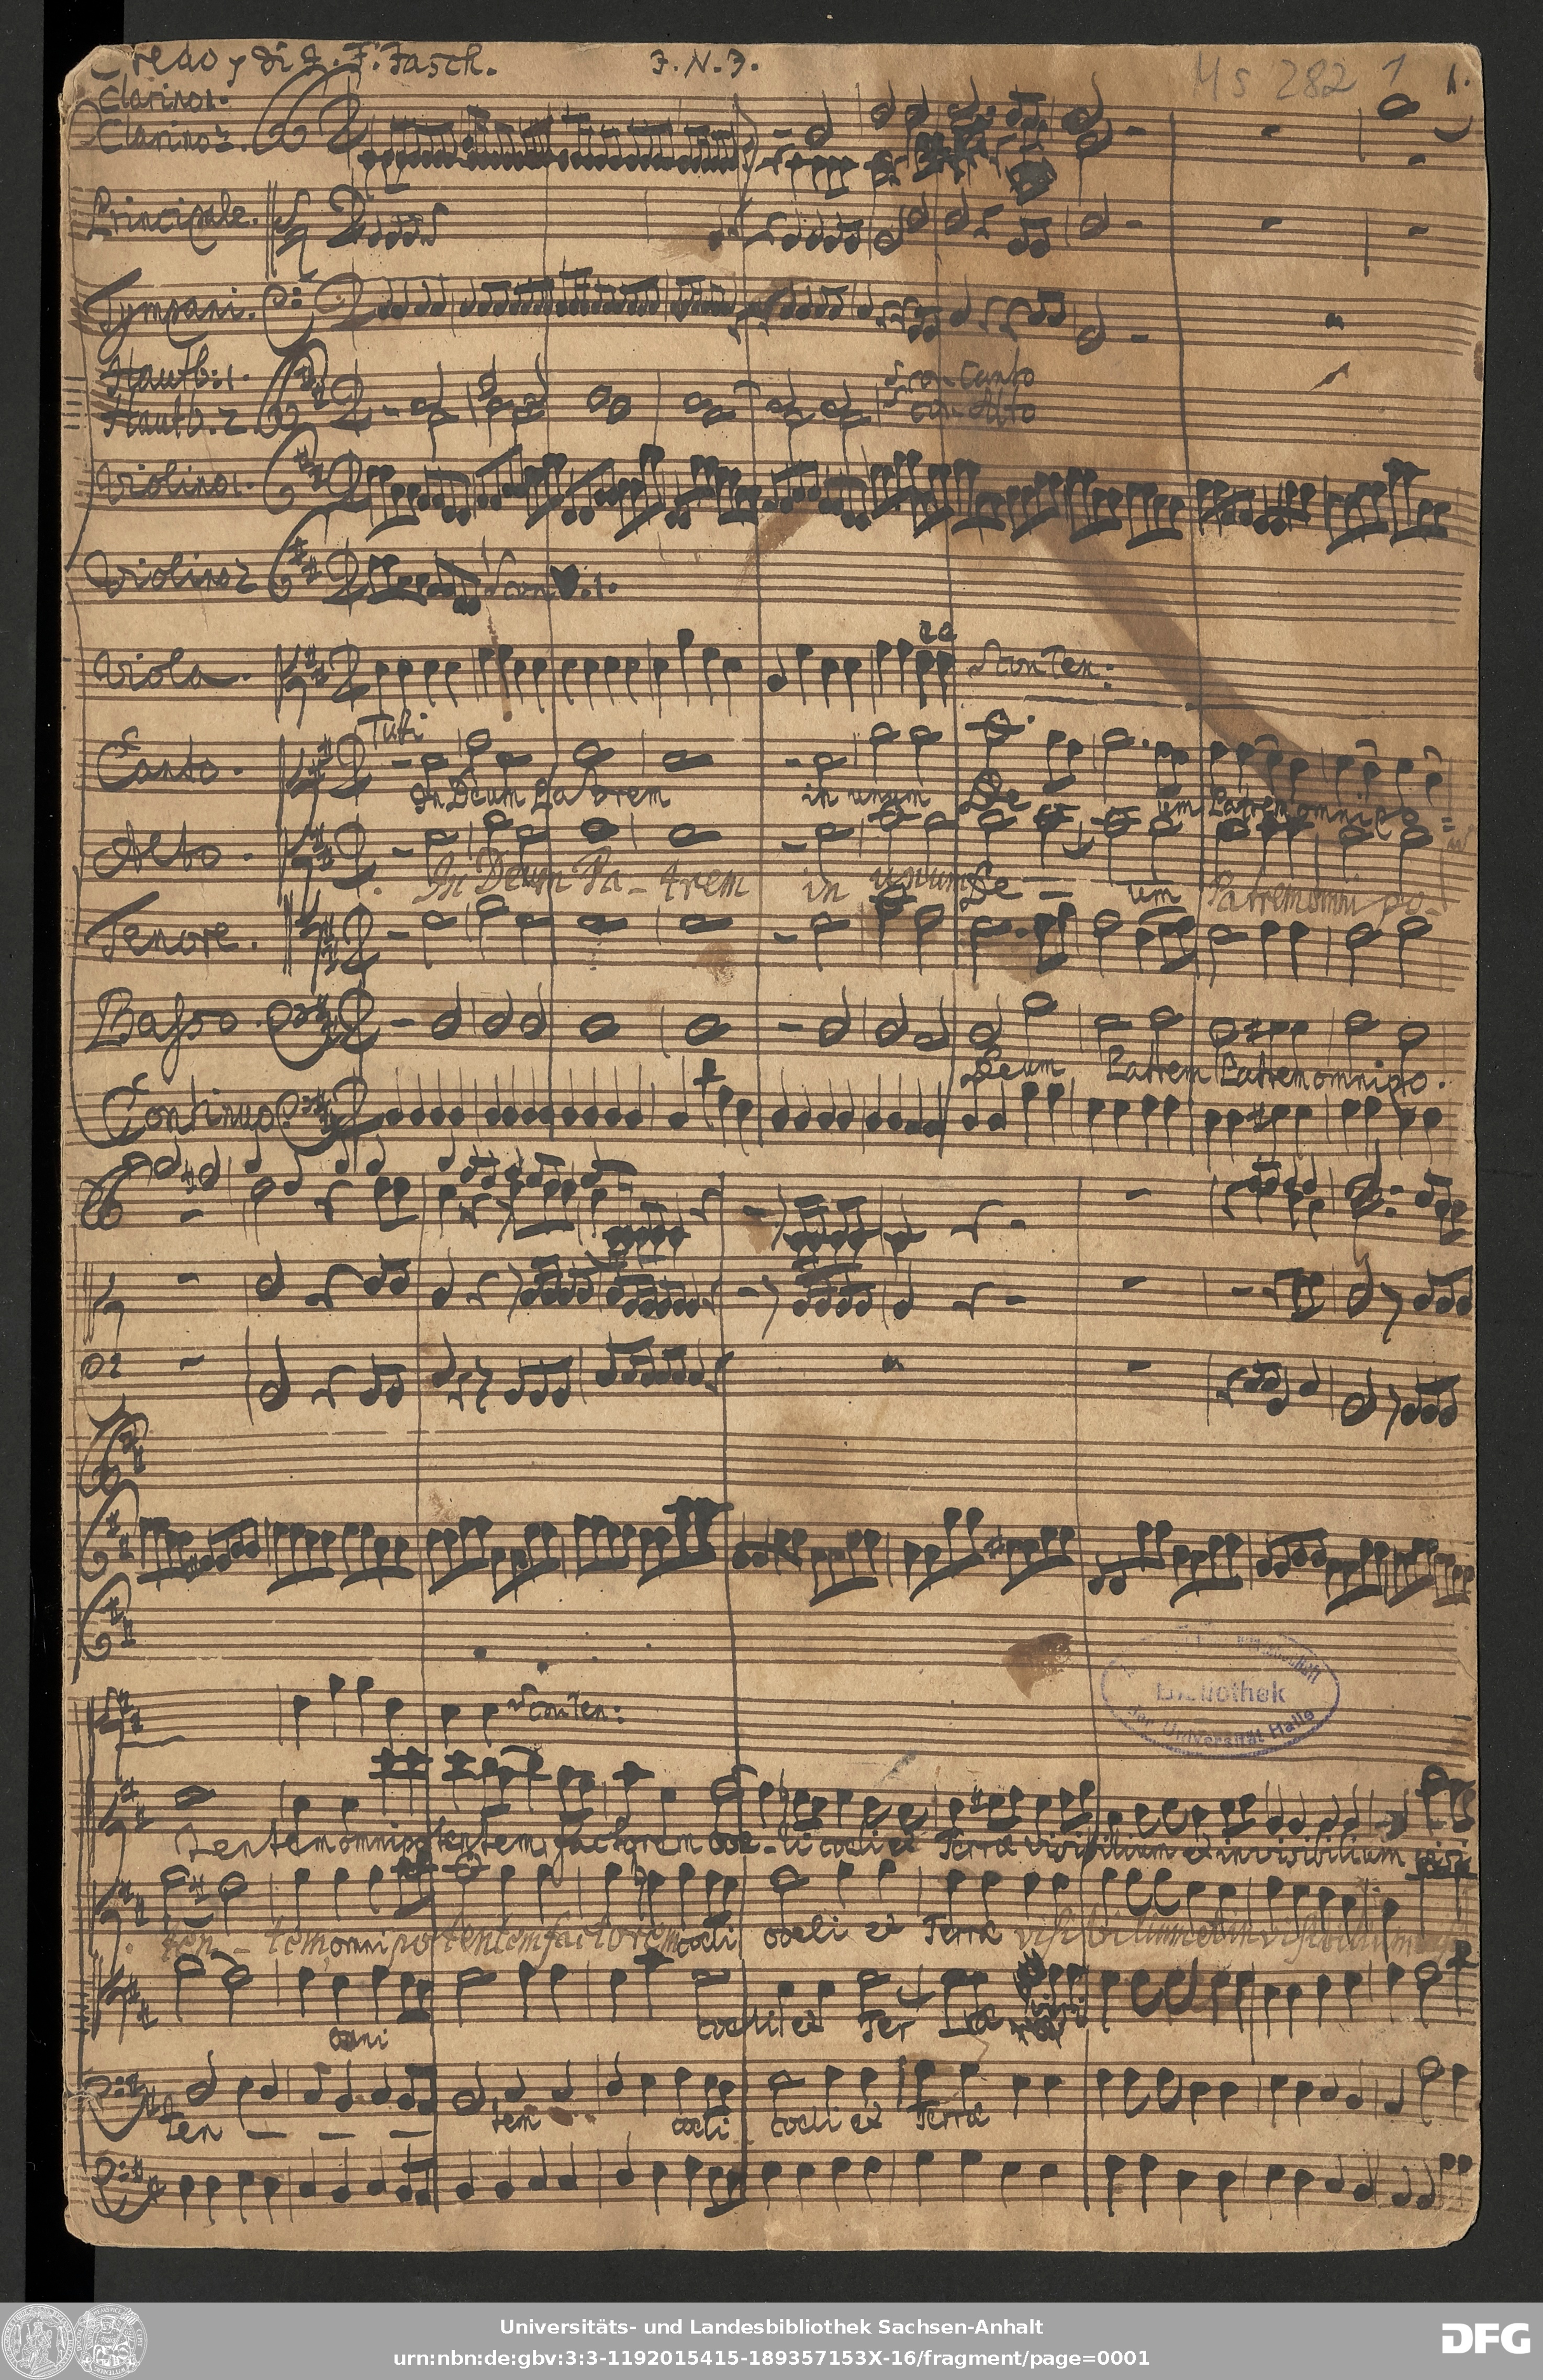 Credo, di J. F. Fasch. J. N. J. Ms 282 1 1.
Clarino 1.
Clarino 2.
Principale.
Tympani.
Hautb: 1. con Canto
Hautb. 2 con Alto
Violino 1.
Violino 2 con V. 1.
Viola. con Ten:
Tutti
Canto.
In Deum Pa trem in unum De um Patrem omnipo
Alto.
In Deum Pa - trem in unum De - um Patrem omni po -
Tenore.
Basso.
Deum Patrem Patrem omnipo.
Continuo
con Ten:
Bibliothek
der Universität Halle
tentem omnipotentem factorem coe - li coeli et Terræ visibilium et invisibilium
ten - tem omnipotentem factorem coeli coeli et Terræ visibilium et invisibilium
omni coeli et Ter ræ
ten - - - tem coeli coeli et Terræ
Universitäts- und Landesbibliothek Sachsen-Anhalt
urn:nbn:de:gbv:3:3-1192015415-189357153X-16/fragment/page=0001
DFG